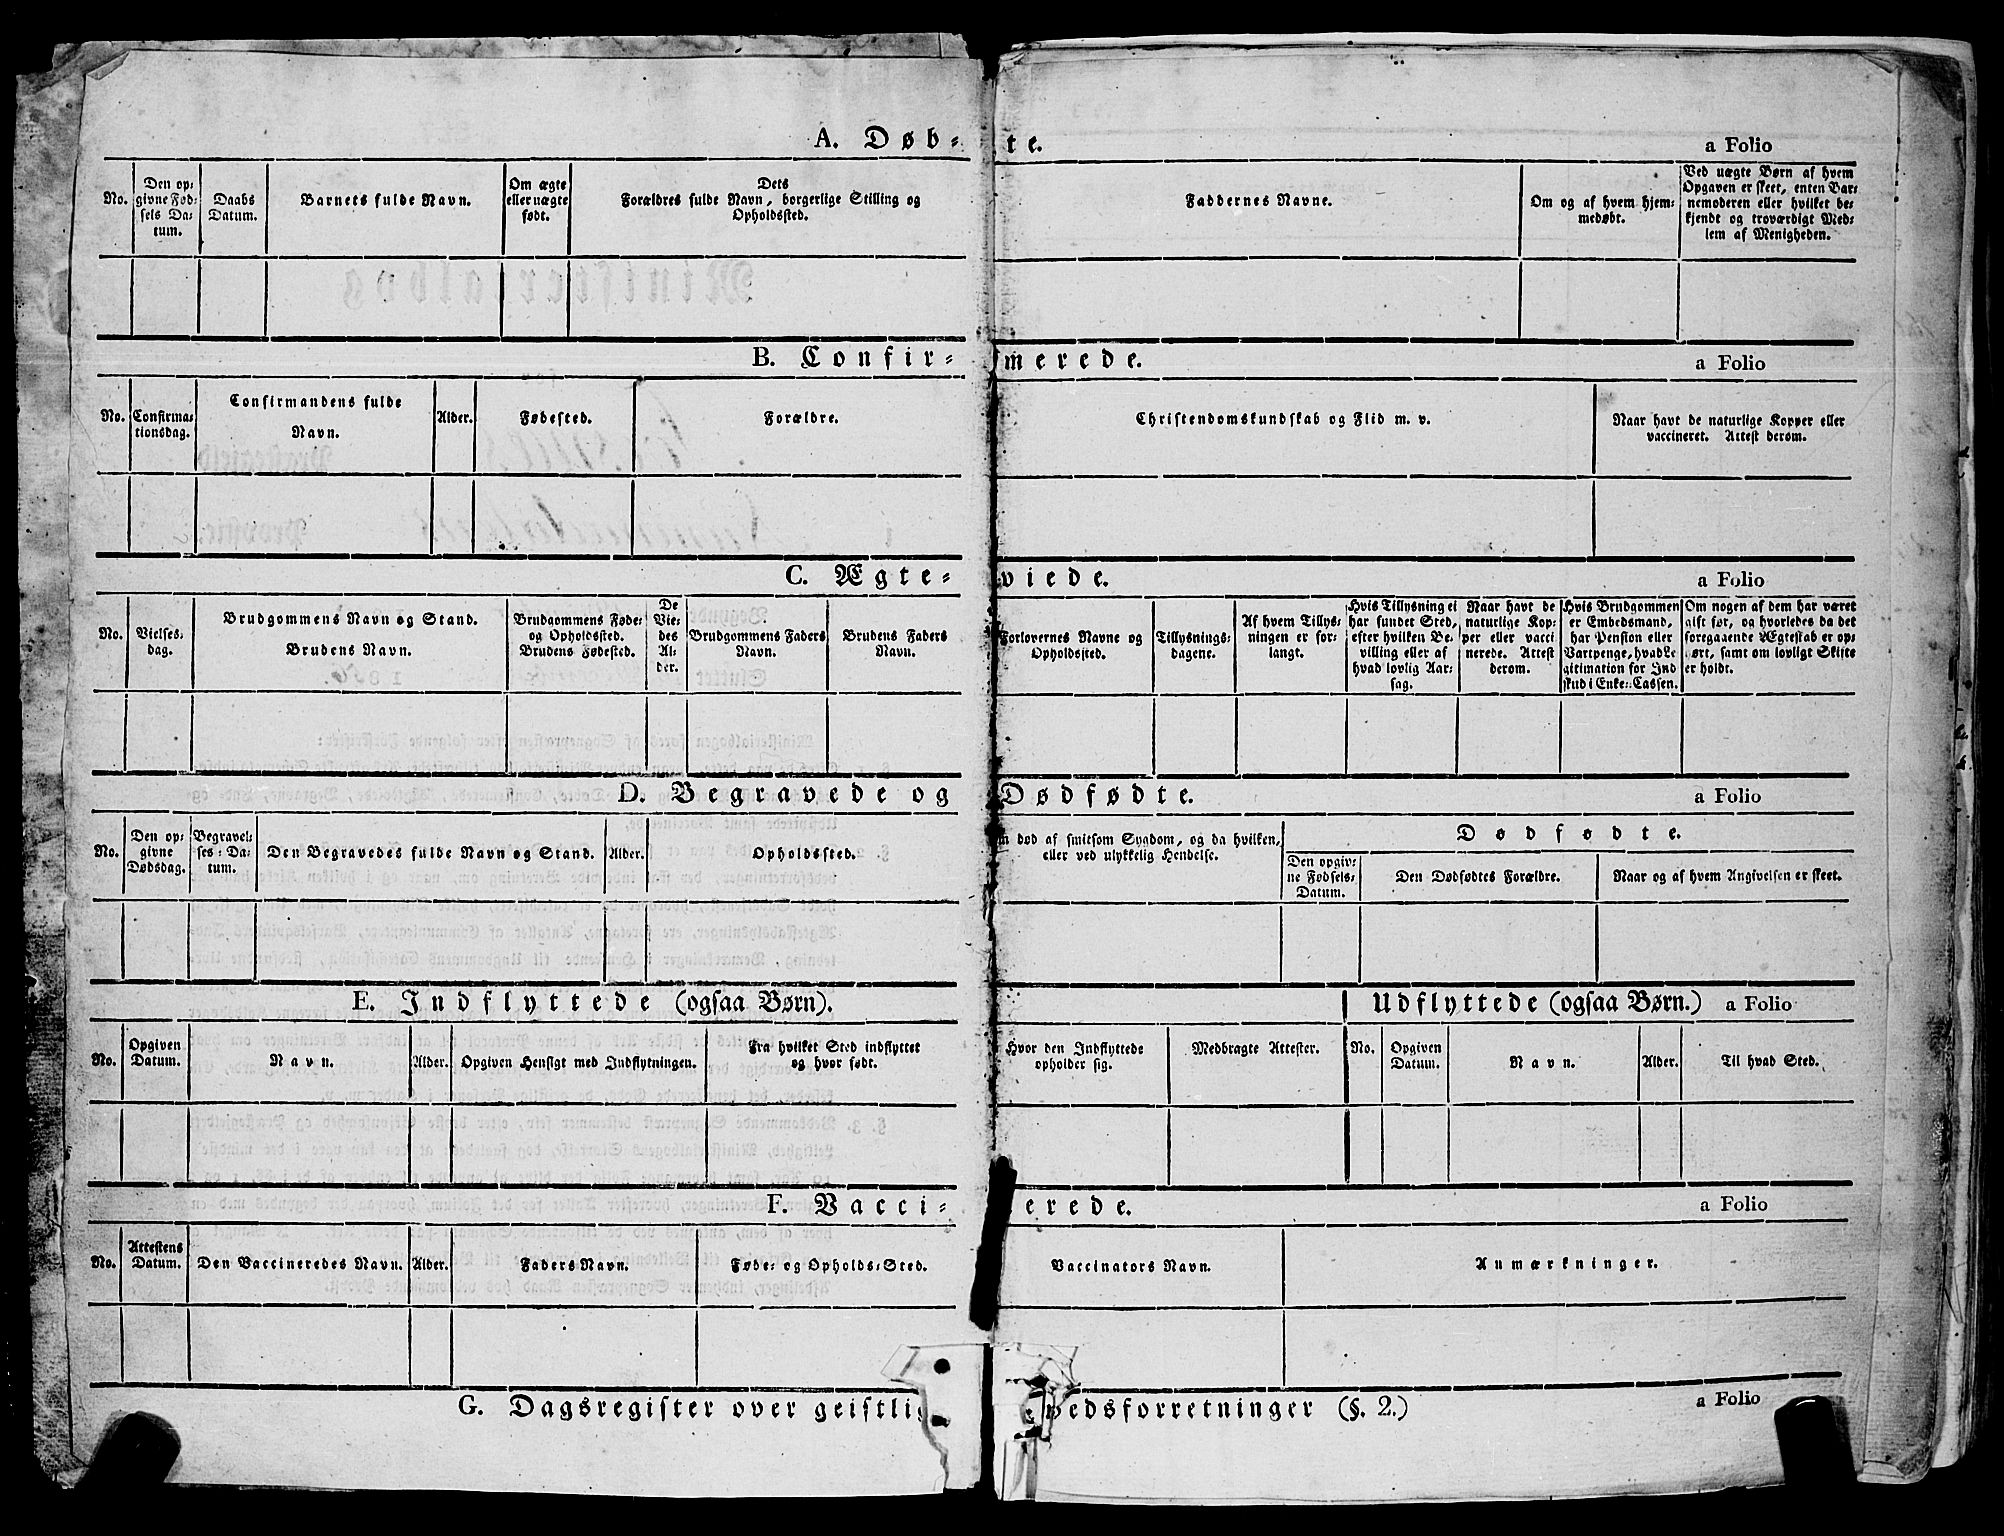 A. Døb-te. a Folio
No.
Den op-
givne Fød-
sels Da-
tum.
Daabs
Datum.
Barnets fulde Navn.
Om ægte
eller uægte
født.
Dets
Forældres fulde Navn, borgerlige Stilling og
Opholdssted.
Faddernes Navne.
Om og af hvem hjem-
medøbt.
Ved uægte Børn af hvem
Opgaven er skeet, enten Bar-
nemoderen eller hvilket be-
kjendt og troværdigt Med-
lem af Menigheden.
B. Confir-merede. a Folio
No.
Confirma-
tionsdag.
Confirmandens fulde
Navn.
Alder.
Fødested.
Forældre.
Christendomskundskab og Flid m. v.
Naar havt de naturlige Kopper eller
vaccineret. Attest derom.
C. Ægte-viede. a Folio
No.
Vielses-
dag.
Brudgommens Navn og Stand.
Brudens Navn.
Brudgommens Føde-
og Opholdssted.
Brudens Fødested.
De
Vie-
des
Al-
der.
Brudgommens Faders
Navn.
Brudens Faders
Navn.
Forlovernes Navne og
Opholdssted.
Tillysnings-
dagene.
Af hvem Tillys-
ningen er for-
langt.
Hvis Tillysning ei
har fundet Sted,
efter hvilken Be-
villing eller af
hvad lovlig Aar-
sag.
Naar havt de
naturlige Kop-
per eller vacci
nerede. Attest
derom.
Hvis Brudgommen
er Embedsmand,
har Pension eller
Vartpenge, hvad Le
gitimation for Ind
skud i Enke-Cassen.
Om nogen af dem har været
gift før, og hvorledes da det
foregaaende Ægteskab er op-
hørt, samt om lovligt Skifte
er holdt.
D. Begravede og Dødfødte. a Folio
No.
Den op-
givne
Dødsdag.
Begravel-
ses-Da-
tum.
Den Begravedes fulde Navn og Stand.
Alder.
Opholdssted.
død af smitsom Sygdom, og da hvilken,
eller ved ulykkelig Hendelse.
Dødfødte.
Den opgiv-
ne Fødsels-
Datum.
Den Dødfødtes Forældre.
Naar og af hvem Angivelsen er skeet.
E. Indflyttede (ogsaa Børn). Udflyttede (ogsaa Børn.) a Folio
No.
Opgiven
Datum.
Navn.
Alder.
Opgiven Hensigt med Indflytningen.
Fra hvilket Sted indflyttet
og hvor født.
Hvor den Indflyttede
opholder sig.
Medbragte Attester.
No.
Opgiven
Datum.
Navn.
Alder.
Til hvad Sted.
F. Vacci-erede. a Folio
No.
Attestens
Datum.
Den Vaccineredes Navn.
Alder.
Faders Navn.
Føde- og Opholds-Sted.
Vaccinators Navn.
Anmærkninger.
G. Dagsregister over geistlig vedsforretninger (§. 2.) a Folio